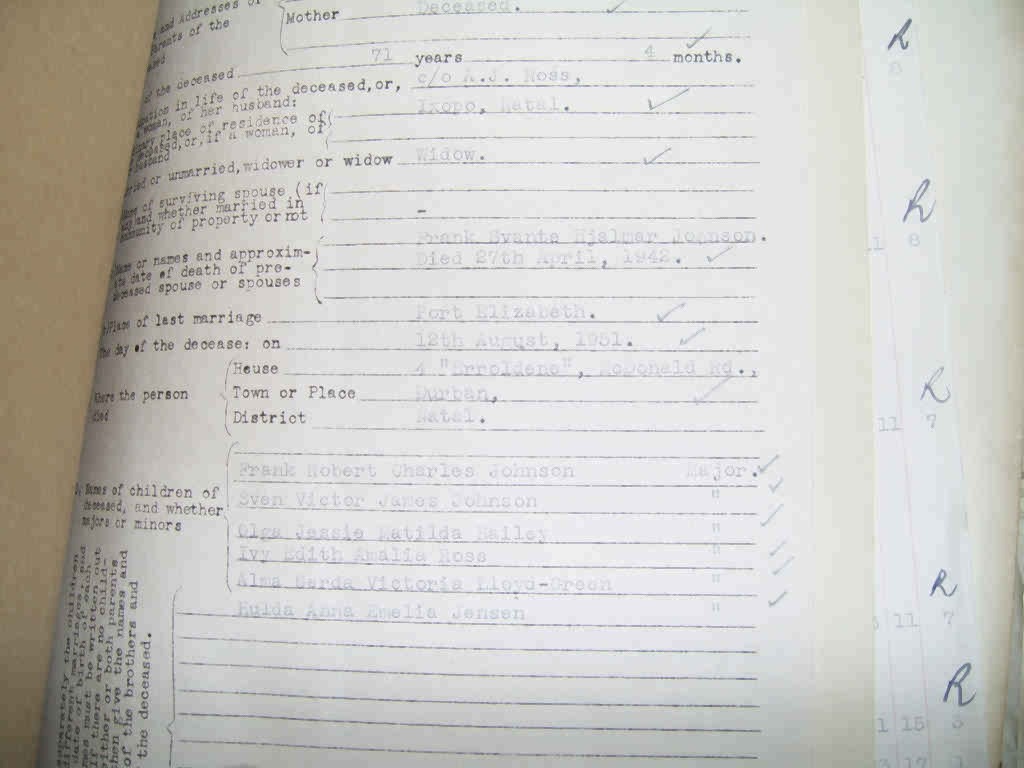 and Addresses of
Parents of the
Mother Deceased.
71 years 4 months.
of the deceased
in life of the deceased, or, c/o A.J. Ross,
woman, of her husband: Ixopo, Natal.
place of residence of
or, if a woman, of
husband
or unmarried, widower or widow Widow.
of surviving spouse (if
and whether married in
community of property or not -
Frank Svante Hjalmar Johnson.
Name or names and approxim-
ate date of death of pre- Died 27th April, 1942.
deceased spouse or spouses
Place of last marriage Port Elizabeth.
The day of the decease: on 12th August, 1951.
House 4 "Erroldene", McDonald Rd.,
Where the person Town or Place Durban,
died District Natal.
Frank Robert Charles Johnson Major.
Names of children of Sven Victor James Johnson "
deceased, and whether
majors or minors Olga Jessie Matilda Bailey "
Ivy Edith Amalia Ross "
Alma Gerda Victoria Lloyd-Green "
Hulda Anna Emelia Jensen "
separately the children
different marriages, and
date of birth of each.
must be written out
If there are no child-
either or both parents
then give the names and
of the brothers and
the deceased.
R
8
R
8
R
11 7
R
11 7
R
15
17